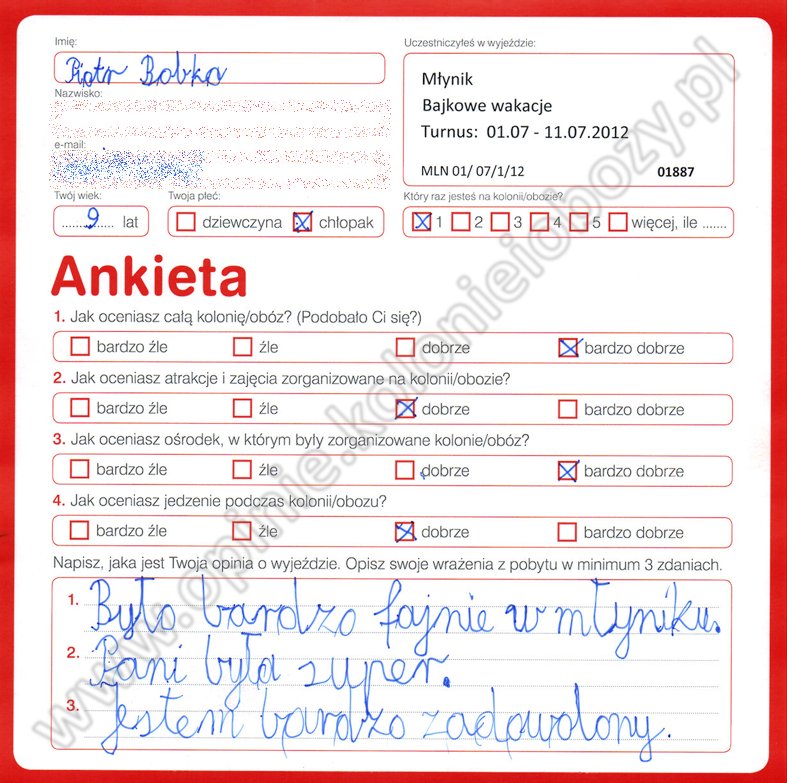 Imię:
Piotr Bobko
Nazwisko:
e-mail:
Twój wiek:
9 lat
Twoja płeć:
dziewczyna chłopak
Uczestniczyłeś w wyjeździe:
Młynik
Bajkowe wakacje
Turnus: 01.07 - 11.07.2012
MLN 01/ 07/1/12 01887
Który raz jesteś na kolonii/obozie?
1 2 3 4 5 więcej, ile .......
Ankieta
1. Jak oceniasz całą kolonię/obóz? (Podobało Ci się?)
bardzo źle źle dobrze bardzo dobrze
2. Jak oceniasz atrakcje i zajęcia zorganizowane na kolonii/obozie?
bardzo źle źle dobrze bardzo dobrze
3. Jak oceniasz ośrodek, w którym byly zorganizowane kolonie/obóz?
bardzo źle źle dobrze bardzo dobrze
4. Jak oceniasz jedzenie podczas kolonii/obozu?
bardzo źle źle dobrze bardzo dobrze
Napisz, jaka jest Twoja opinia o wyjeździe. Opisz swoje wrażenia z pobytu w minimum 3 zdaniach.
1. Było bardzo fajnie w młyniku.
2. Pani była super.
3. Jestem bardzo zadowolony.
www.opinie.kolonieiobozy.pl